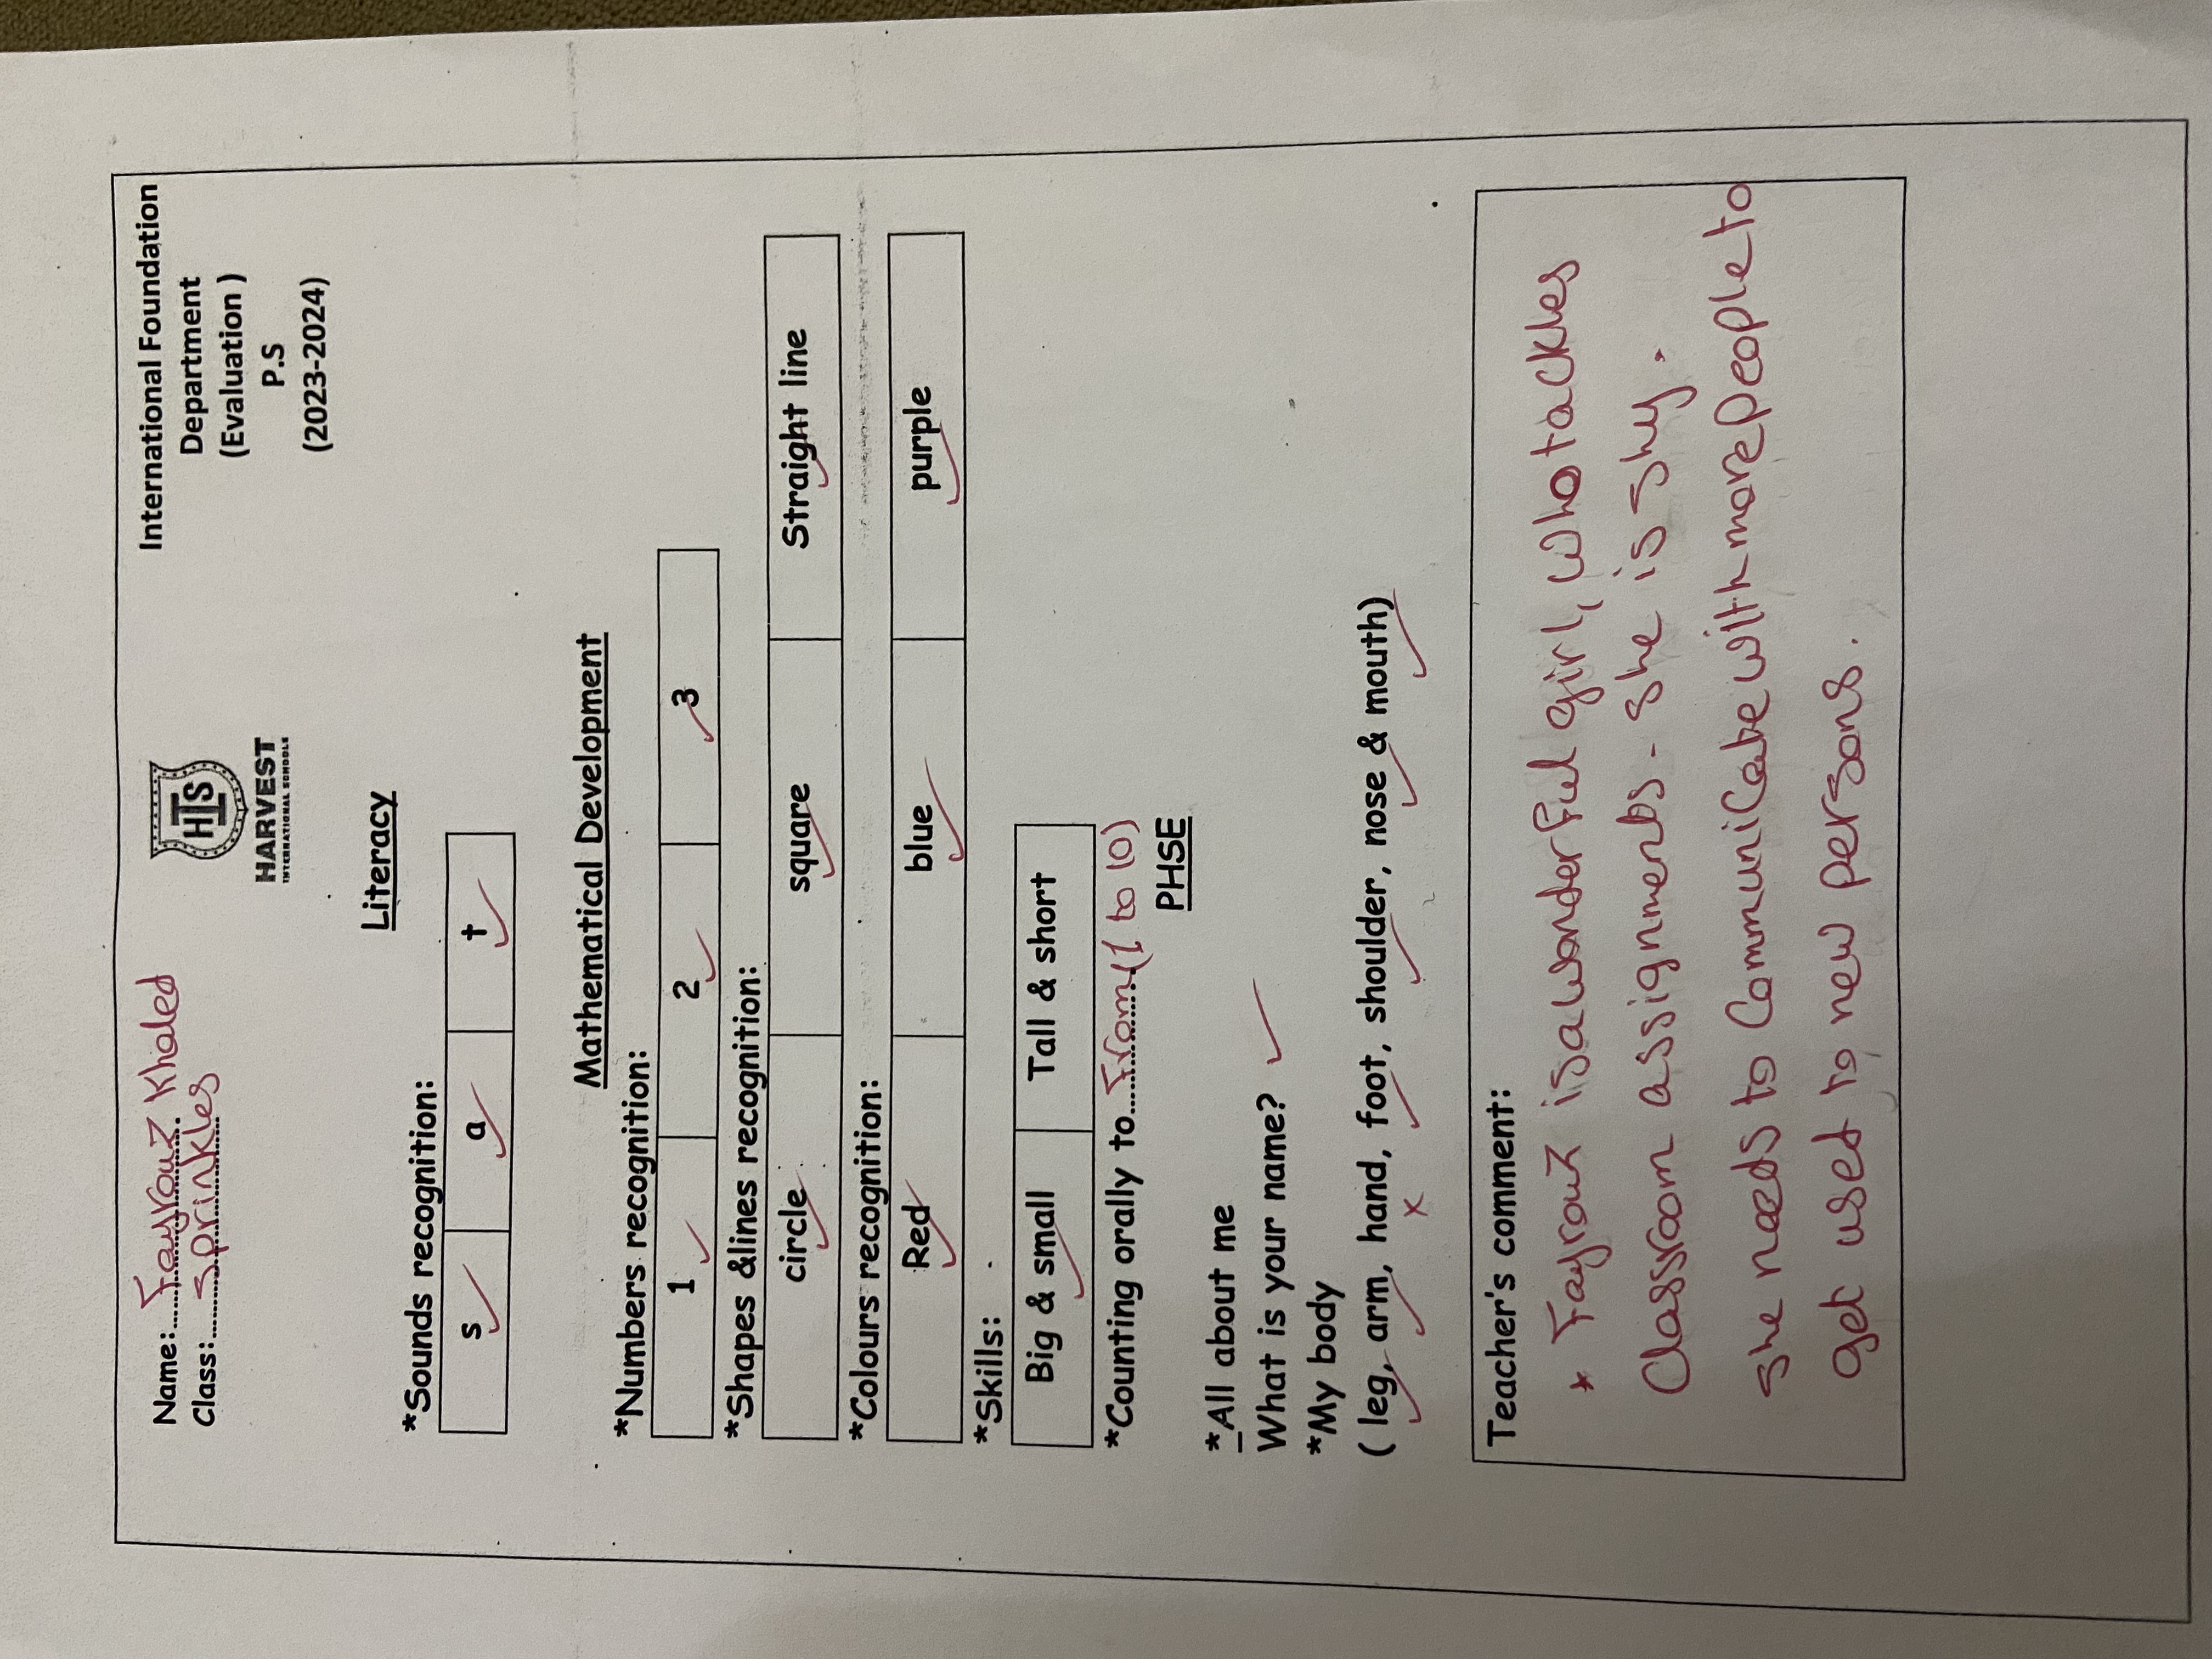 Name: Fayrouz Khaled
Class: Sprinkles
HIS
HARVEST
INTERNATIONAL SCHOOLS
International Foundation
Department
(Evaluation )
P.S
(2023-2024)
Literacy
*Sounds recognition:
s ✓ a ✓ t ✓
Mathematical Development
*Numbers recognition:
1 ✓ 2 ✓ 3 ✓
*Shapes &lines recognition:
circle ✓ square ✓ Straight line ✓
*Colours recognition:
Red ✓ blue ✓ purple ✓
*Skills:
Big & small ✓ Tall & short
*Counting orally to........ From (1 to 10)
PHSE
*All about me
What is your name? ✓
*My body
( leg, arm, hand, foot, shoulder, nose & mouth)
✓ ✓ x ✓ ✓ ✓ ✓
Teacher's comment:
* Fayrouz is a wonderful girl, who tackles
Classroom assignments - she is shy.
she needs to Communicate with more people to
get used to new persons.